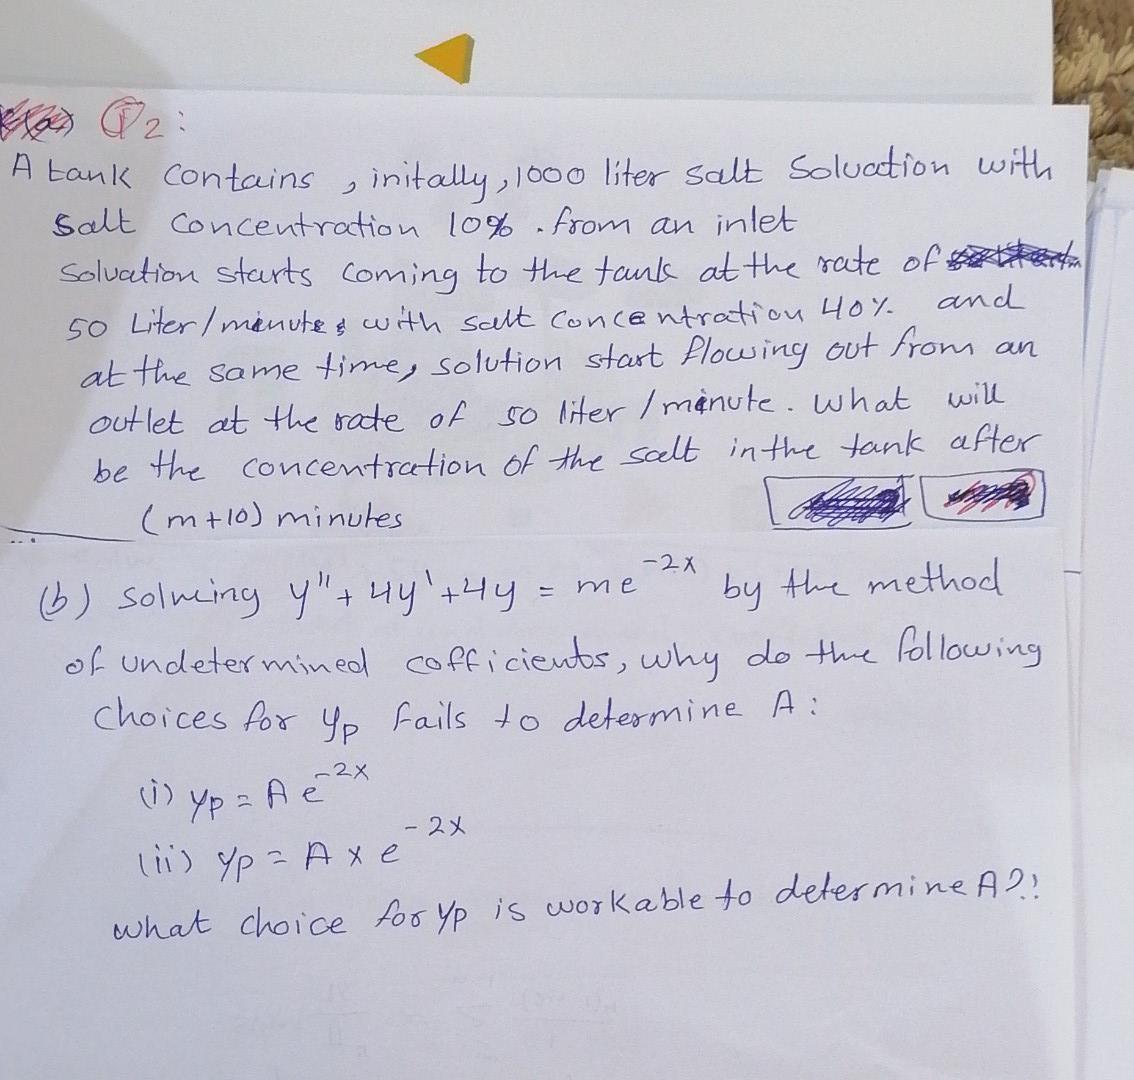 Q2:
A tank contains, initally, 1000 liter salt Soluation with
salt concentration 10%. from an inlet
Soluation starts coming to the tank at the rate of
50 Liter/minute, with salt concentration 40% and
at the same time, solution start flowing out from an
outlet at the rate of 50 liter/minute. What will
be the concentration of the salt in the tank after
(m+10) minutes
(b) solving y"+4y'+4y = me^-2x by the method
of undetermined cofficients, why do the following
choices for yp fails to determine A:
(i) yp = A e^-2x
(ii) yp = A x e^-2x
what choice for yp is workable to determine A?!